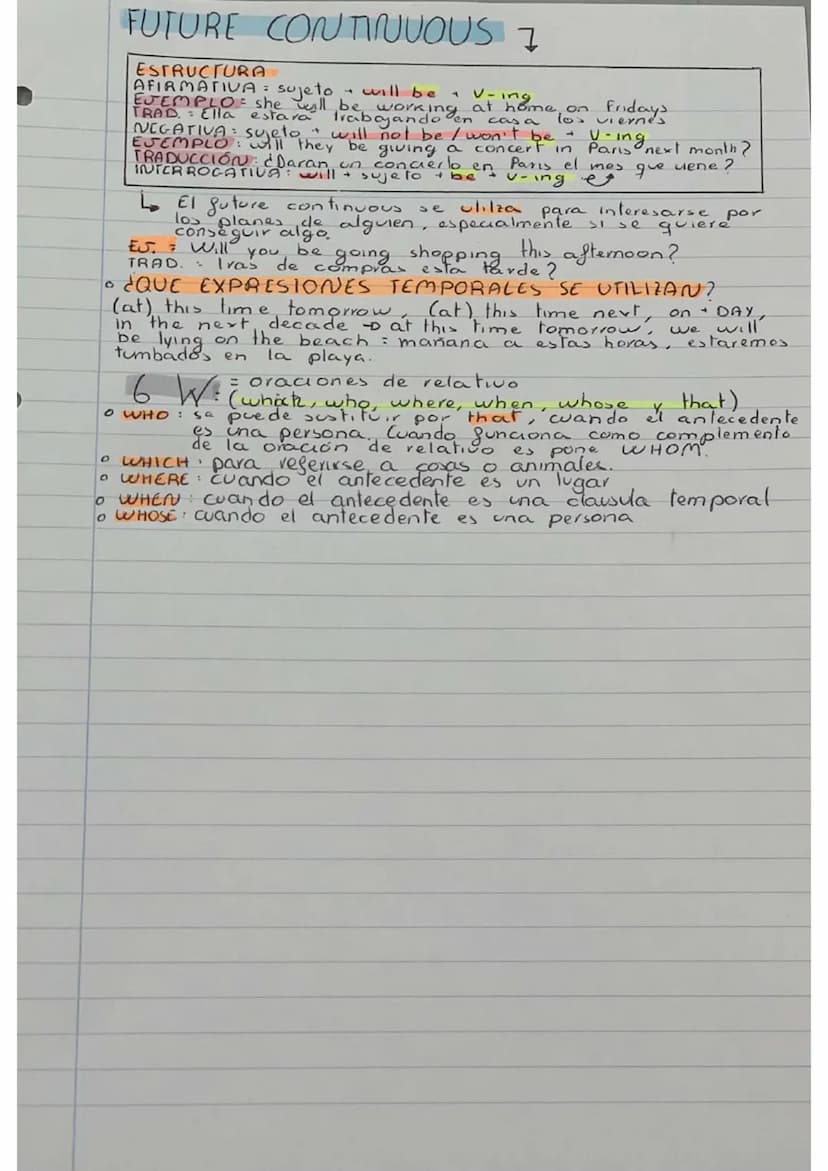 FUTURE CONTINUOUS
ESTRUCTURA
AFIRMATIVA: sujeto + will be + V-ing
EJEMPLO: she will be working at home on Fridays
TRAD.: Ella estará trabajando en casa los viernes
NEGATIVA: sujeto + will not be / won't be + V-ing
EJEMPLO: will they be giving a concert in Paris next month?
TRADUCCIÓN: ¿Daran un concierto en Paris el mes que viene?
INTERROGATIVA: will + sujeto + be + v-ing
↳ El future continuous se utiliza para interesarse por
los planes de alguien, especialmente si se quiere
conseguir algo.
EJ.: Will you be going shopping this afternoon?
TRAD.: Iras de compras esta tarde?
¿QUE EXPRESIONES TEMPORALES SE UTILIZAN?
(at) this time tomorrow, (at) this time next, on + DAY,
in the next decade → at this time tomorrow, we will
be lying on the beach = mañana a estas horas, estaremos
tumbados en la playa.
6 W: = oraciones de relativo
(which, who, where, when, whose y that)
WHO: se puede sustituir por that, cuando el antecedente
es una persona. Cuando funciona como complemento
de la oración de relativo es pone WHOM.
WHICH: para referirse a cosas o animales.
WHERE: cuando el antecedente es un lugar
WHEN: cuando el antecedente es una clausula temporal
WHOSE: cuando el antecedente es una persona